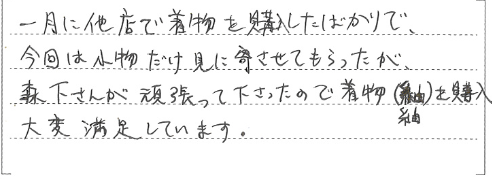 一月に他店で着物を購入したばかりで、
今回は小物だけ見に寄させてもらったが、
森下さんが頑張って下さったので着物(紬)を購入
紬
大変満足しています。